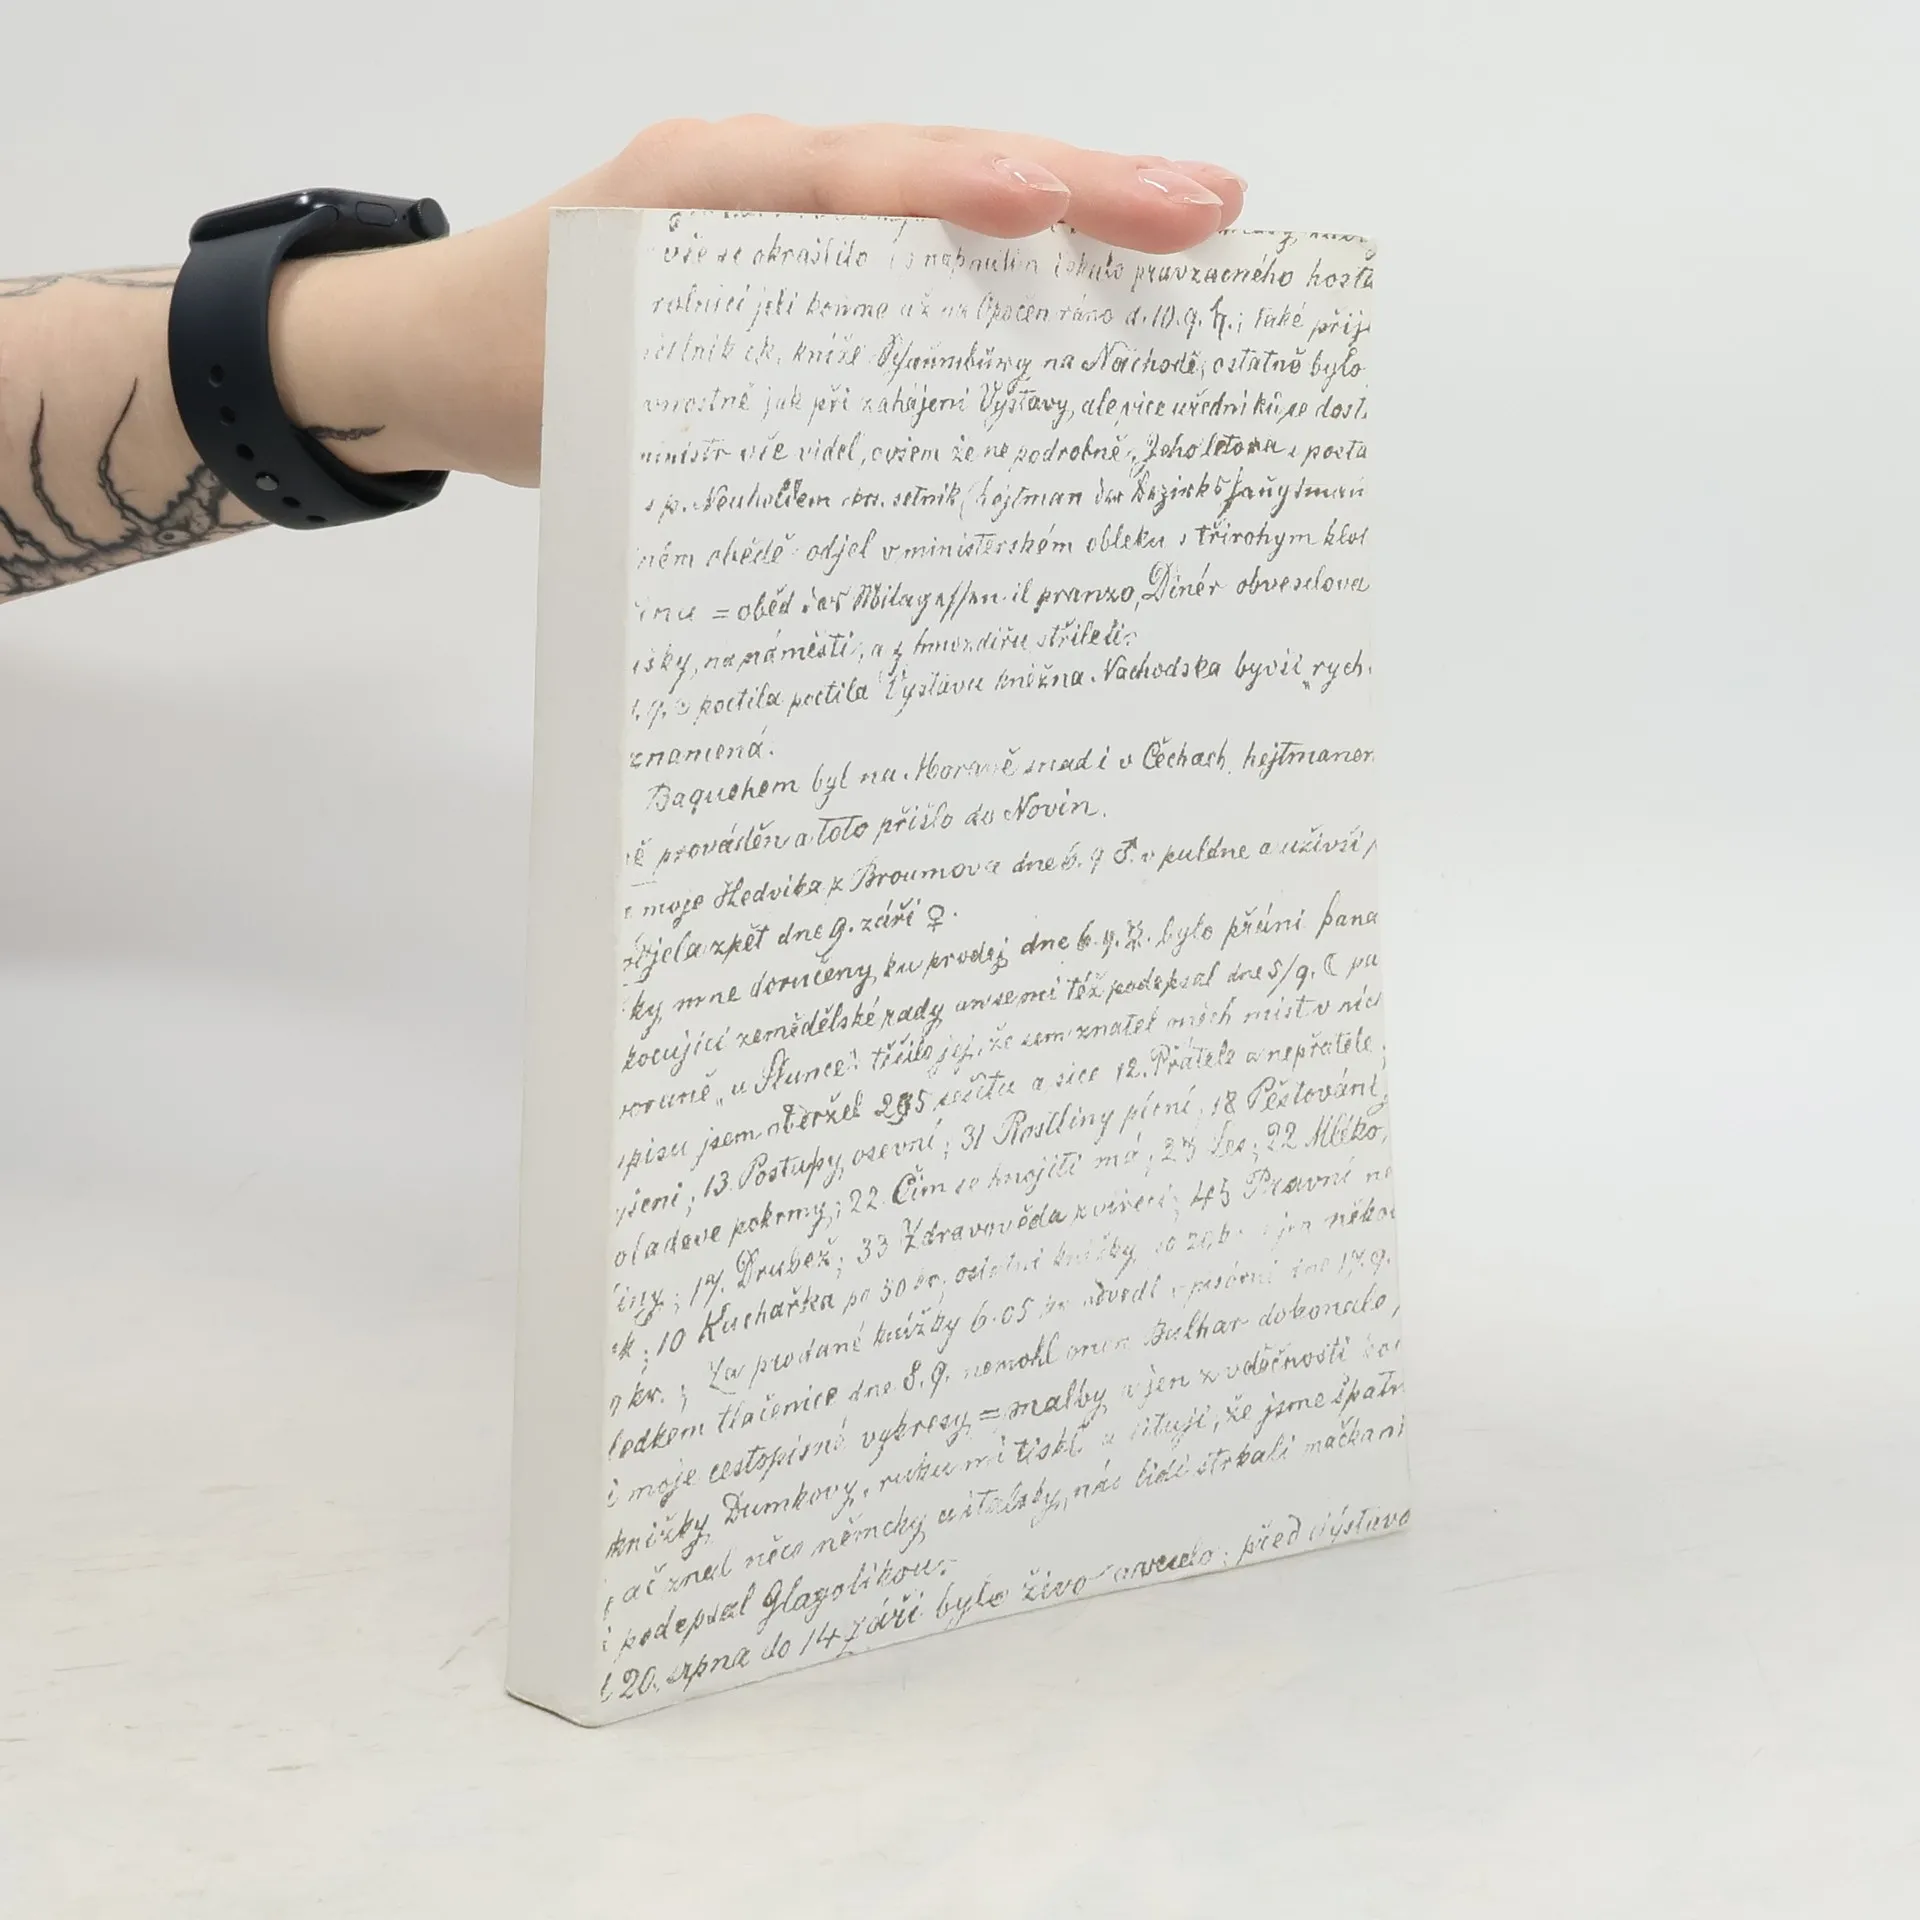 vše se okrašlilo s napnutím pravzácného hosta
jeli koňmo až na Opočen ráno d. 10. 9. ♃.; také přij
kníže Schaumburg na Náchodě, ostatně bylo
jak při zahájení Výstavy, ale více úředníků se dost.
ministr vše viděl, ovšem že ne podrobně. Jeho letora i posta
s p. Neuholdem setník (hejtman der Bezirkshauptmann
ném obědě odjel v ministerském obleku s třírohým klo
= oběd das Mittagessen il pranzo, Dinér obveselova
isky, na náměstí, a z hmozdířu stříleti.
poctila poctila Výstavu kněžna Náchodska byvší „rych
znamená.
Baquehem byl na Moravě snad i v Čechách hejtmanem
ě prováděn a toto přišlo do Novin.
moje Hedvika z Broumova dne 6. 9 ♂. v puldne a uživší
odjela zpět dne 9. září ♀.
ky mne doručeny ku prodej dne 6. 9. bylo přání pana
kocující zemědělské rady an se mi též podepsal dne 5/9. ☾
„u Slunce“ těšilo jej, že sem znatel oněch míst v nic
spisu jsem obdržel 295 sešitu a sice 12. Přátelé a nepřátelé;
ysení; 13. Postupy osevní; 31 Rostliny pícní; 18 Pěstování
oladove pokrmy; 22. Čím se hnojiti má; 23 Les; 22 Mléko,
iny; 17. Drubež; 33 Zdravověda zvířecí; 45 Pravní
k; 10 Kuchařka po 50 kr. ostatní knížky po 20, jen něko
kr.; Za prodané knížky 6.05 kr odvedl dne 17. 9.
ledkem tlačenice dne 8. 9. nemohl onen Bulhar dokonale,
i moje cestopisné vykresy = malby a jen z vděčnosti
knížky Dumkovy, ruku mi tiskl a lituji, že jsme špatn
ač znal něco německy a italsky, nás lidi strkali mačkani
i podepsal Glagolikou.
20. srpna do 14 září bylo živo a veselo; před výstavo